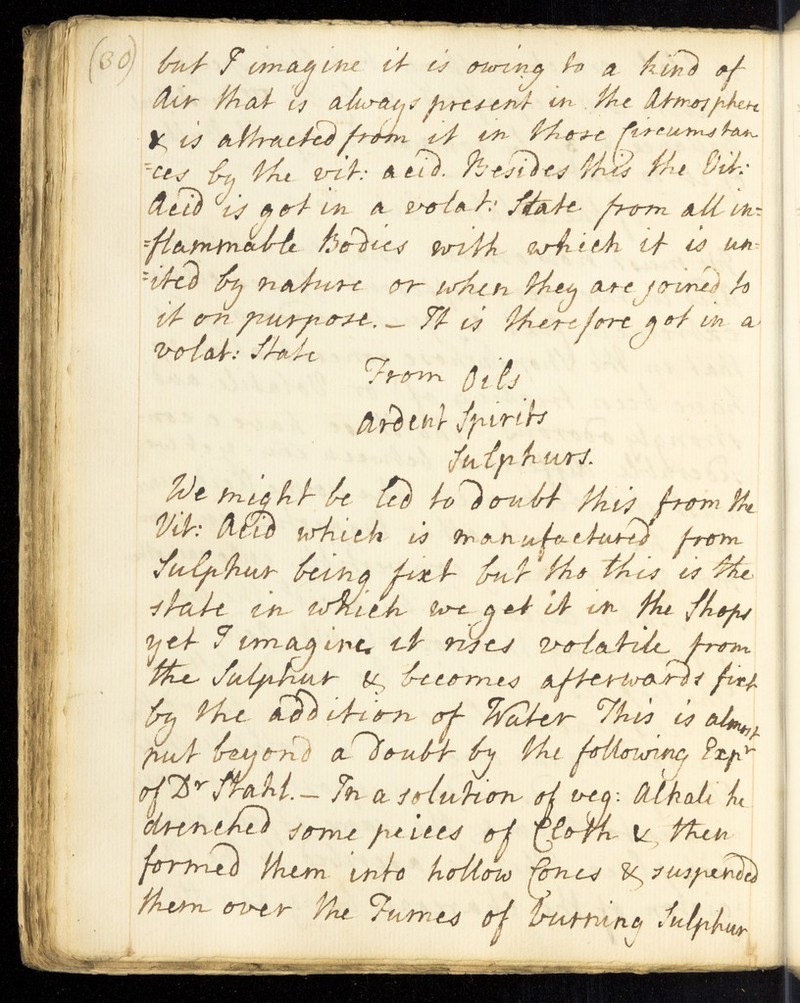 (30)
but I imagine it is owing to a kind of
Air that is always present in the Atmosphere
& is attracted from it in those Circumstan
=ces by the vit: acid. Besides this the Vit:
Acid is got in a volat: State from all in=
=flammable Bodies with which it is un=
=ited by nature or when they are joined to
it on purpose. _ It is therefore got in a
volat: State
From Oils
Ardent Spirits
Sulphurs.
We might be led to doubt this from the
Vit: Acid which is manufactured from
Sulphur being fixt but tho this is the
state in which we get it in the Shops
yet I imagine it rises volatile from
the Sulphur & becomes afterwards fixt
by the addition of Water This is almost
put beyond a doubt by the following Expr
of Dr Stahl. _ In a solution of veg: Alkali he
drenched some peices of Cloth & then
formed them into hollow Cones & suspended
them over the Fumes of burning Sulphur